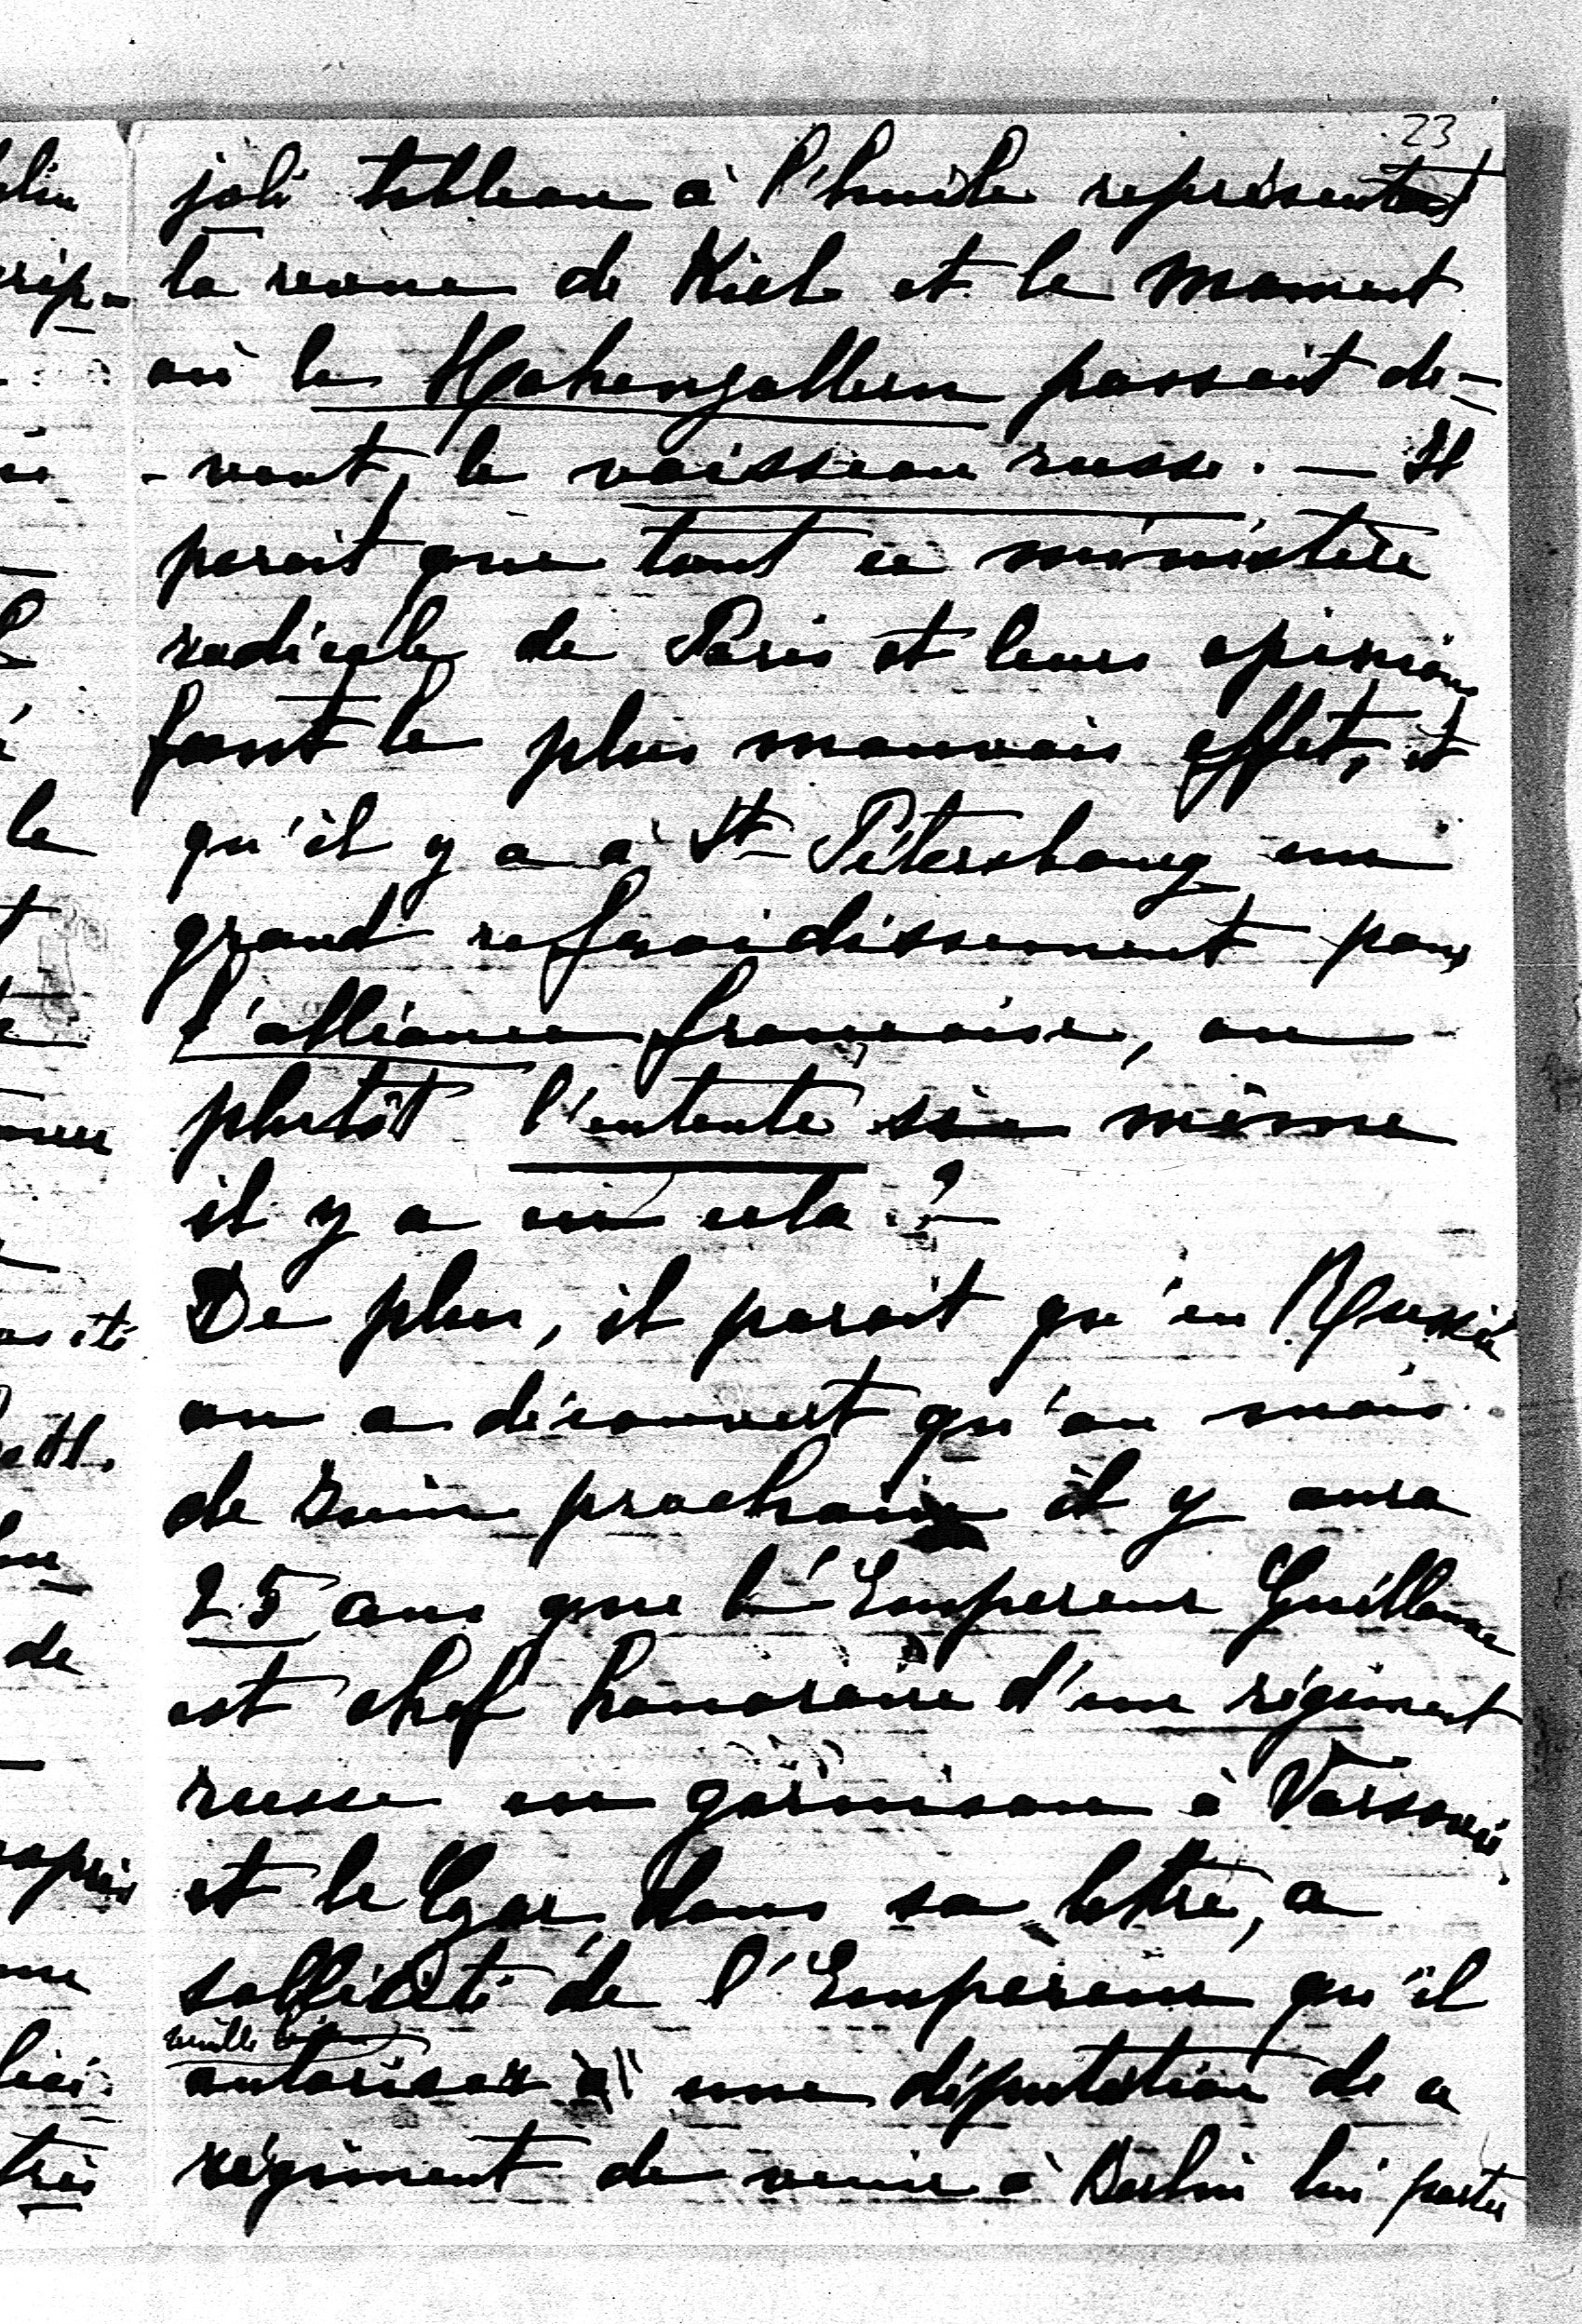 23
joli tableau à l'huile représentant
la revue de Kiel et le moment
où le Hohenzollern passait de-
-vant, le vaisseau russe. — Il
parait que tout ce ministère
radicale de Paris et leurs opinions
font le plus mauvais effet, et
qu'il y a à St-Pétersbourg un
grand refroidissement pour
l'alliance française, ou
plutôt l'entente si même
il y a eu cela ?
De plus, il parait qu'en Russie
on a découvert qu'au mois
de Juin prochain il y aura
25 ans que l'Empereur Guillaume
est chef honoraire d'un régiment
russe en garnison à Varsovie
et le Czar, dans sa lettre, a
sollicité de l'Empereur qu'il
veuille
autoriser une députation de ce
régiment de venir à Berlin lui porter